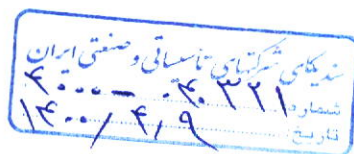 سندیکای شرکتهای تأسیساتی و صنعتی ایران
شماره: ۴۰۰۰ - ۰۴۰۳۲۱
تاریخ: ۱۴۰۰/۴/۹